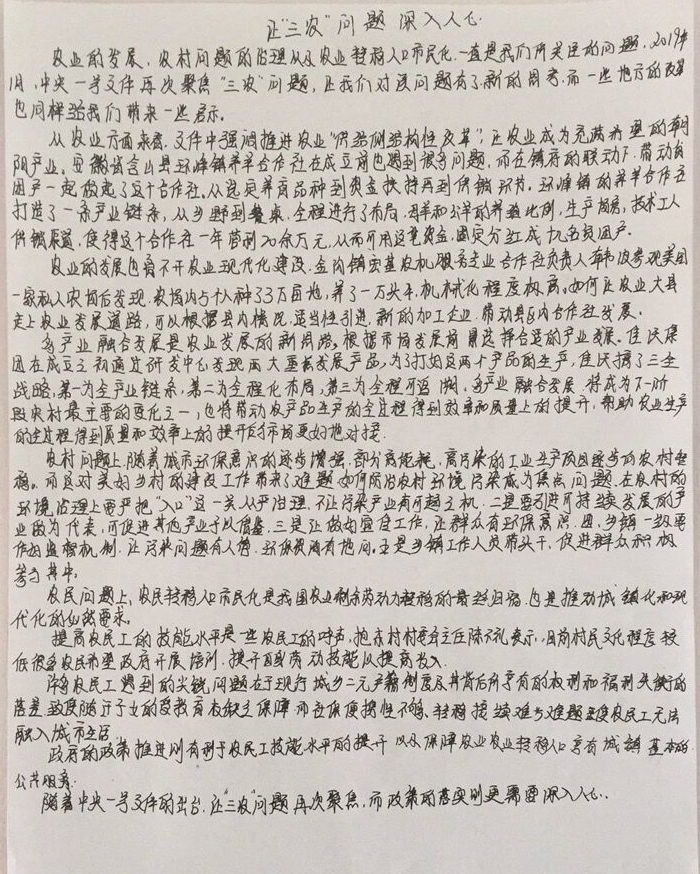 让“三农”问题深入人心
农业的发展、农村问题的治理以及农业转移人口市民化一直是我们所关注的问题，2019年
1月，中央一号文件再次聚焦“三农”问题，让我们对该问题有了新的思考，而一些地方的改革
也同样给我们带来一些启示。
从农业方面来看，文件中强调推进农业“供给侧结构性改革”，让农业成为充满希望的朝
阳产业。安徽省含山县环峰镇养羊合作社在成立前也遇到很多问题，而在镇府的联动下，带动贫
困户一起做起了这个合作社。从选定养商品种到资金扶持再到供销环节，环峰镇的养羊合作社
打造了一条产业链条，从乡野到餐桌，全程进行了布局，母羊和公羊的养殖比例，生产周期，技术工人
供销渠道，使得这个合作社一年营利20余万元，从而可用这笔资金，固定分红成十九名贫困户。
农业的发展也离不开农业现代化建设，金沟镇宏基农机服务专业合作社负责人韩波参观美国
一家私人农场后发现，农场内占十人种了3万亩地，养了一万头牛，机械化程度极高。如何让农业大县
走上农业发展道路，可以根据县内情况，适当性引进新的加工企业，带动县内合作社发展。
多产业融合发展是农业发展的新思路。根据市场发展前景选择合适的产业发展。佳沃集
团在成立之初通过研发中心发现两大重要发展产品，为了打好这两个产品的生产，佳沃搞了三全
战略，第一为全产业链条，第二为全程化布局，第三为全程可追溯，多产业融合发展将成为下一阶
段农村最主要的变化之一，也将带动农产品生产的全过程得到效率和质量上的提升，帮助农业生产
的全过程得到质量和效率上的提升后与市场更好地对接。
农村问题上，随着城市环保意识的逐步增强，部分高能耗，高污染的工业生产项目逐步向农村转
移。而这对美好乡村的建设工作带来了难题，如何防治农村环境污染成为焦点问题，在农村的
环境治理上要严把“入口”这一关，从严治理，不让污染产业有可趁之机，二是要引进可持续发展的产
业做为代表，可促进其他产业予以借鉴，三是让做好宣传工作，让群众有环保意识，四、乡镇一级要
作好监督机制，让污染问题有人管，环保投诉有地问。五是乡镇工作人员带头干，促进群众积极
参与其中。
农民问题上，农民转移人口市民化是我国农业剩余劳动力转移的最终归宿，也是推动城镇化和现
代化的必然要求。
提高农民工的技能水平是一些农民工的呼声，抱木村村委会主任陈不礼表示，目前村民文化程度较
低，很多农民希望政府开展培训，提升自身劳动技能从提高收入。
许多农民工遇到的尖锐问题在于现行城乡二元户籍制度及其背后所享有的权利和福利失衡的
落差，致使随迁子女的受教育权缺乏保障，而社保便携性不够，转移接续难等难题，致使农民工无法
融入城市生活。
政府的政策推进则有利于农民工技能水平的提升，以及保障农业农业转移人口享有城镇基本的
公共服务。
随着中央一号文件的出台，让“三农”问题再次聚焦，而政策的落实则更需要深入人心。